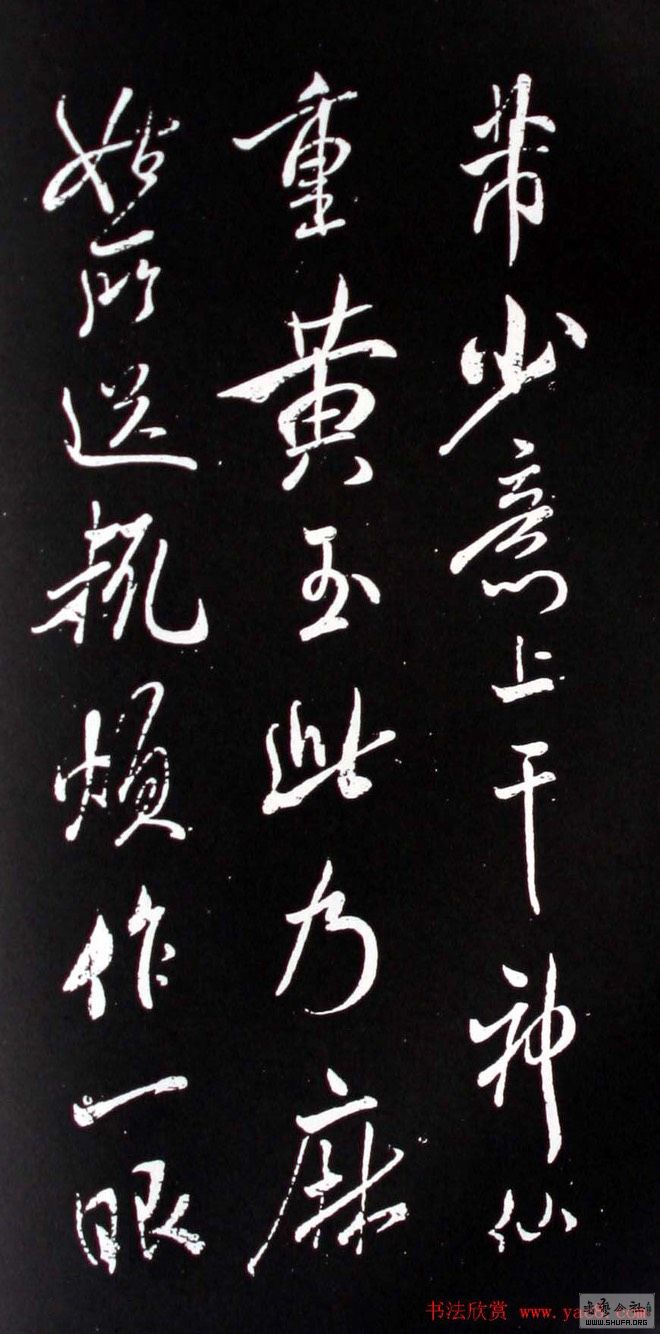 芾少意上干神仙
重黄玉此乃麻
姑所送煩作一眼
书法欣赏 www.ya
WWW.SHUFA.ORG